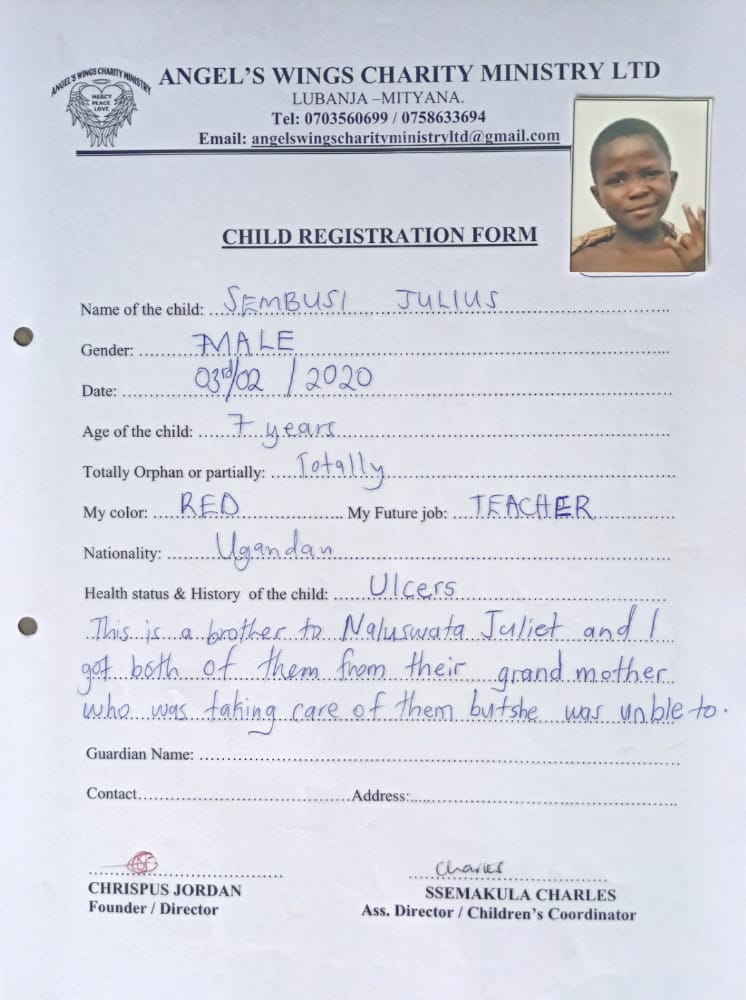 ANGEL'S WINGS CHARITY MINISTRY
MERCY
PEACE
LOVE
ANGEL'S WINGS CHARITY MINISTRY LTD
LUBANJA –MITYANA.
Tel: 0703560699 / 0758633694
Email: angelswingscharityministryltd@gmail.com
CHILD REGISTRATION FORM
Name of the child: SEMBUSI JULIUS
Gender: MALE
Date: 03rd/02 / 2020
Age of the child: 7 years
Totally Orphan or partially: Totally
My color: RED My Future job: TEACHER
Nationality: Ugandan
Health status & History of the child: Ulcers
This is a brother to Naluswata Juliet and I
got both of them from their grand mother
who was taking care of them but she was unble to.
Guardian Name:
Contact Address:
Charles
CHRISPUS JORDAN SSEMAKULA CHARLES
Founder / Director Ass. Director / Children's Coordinator